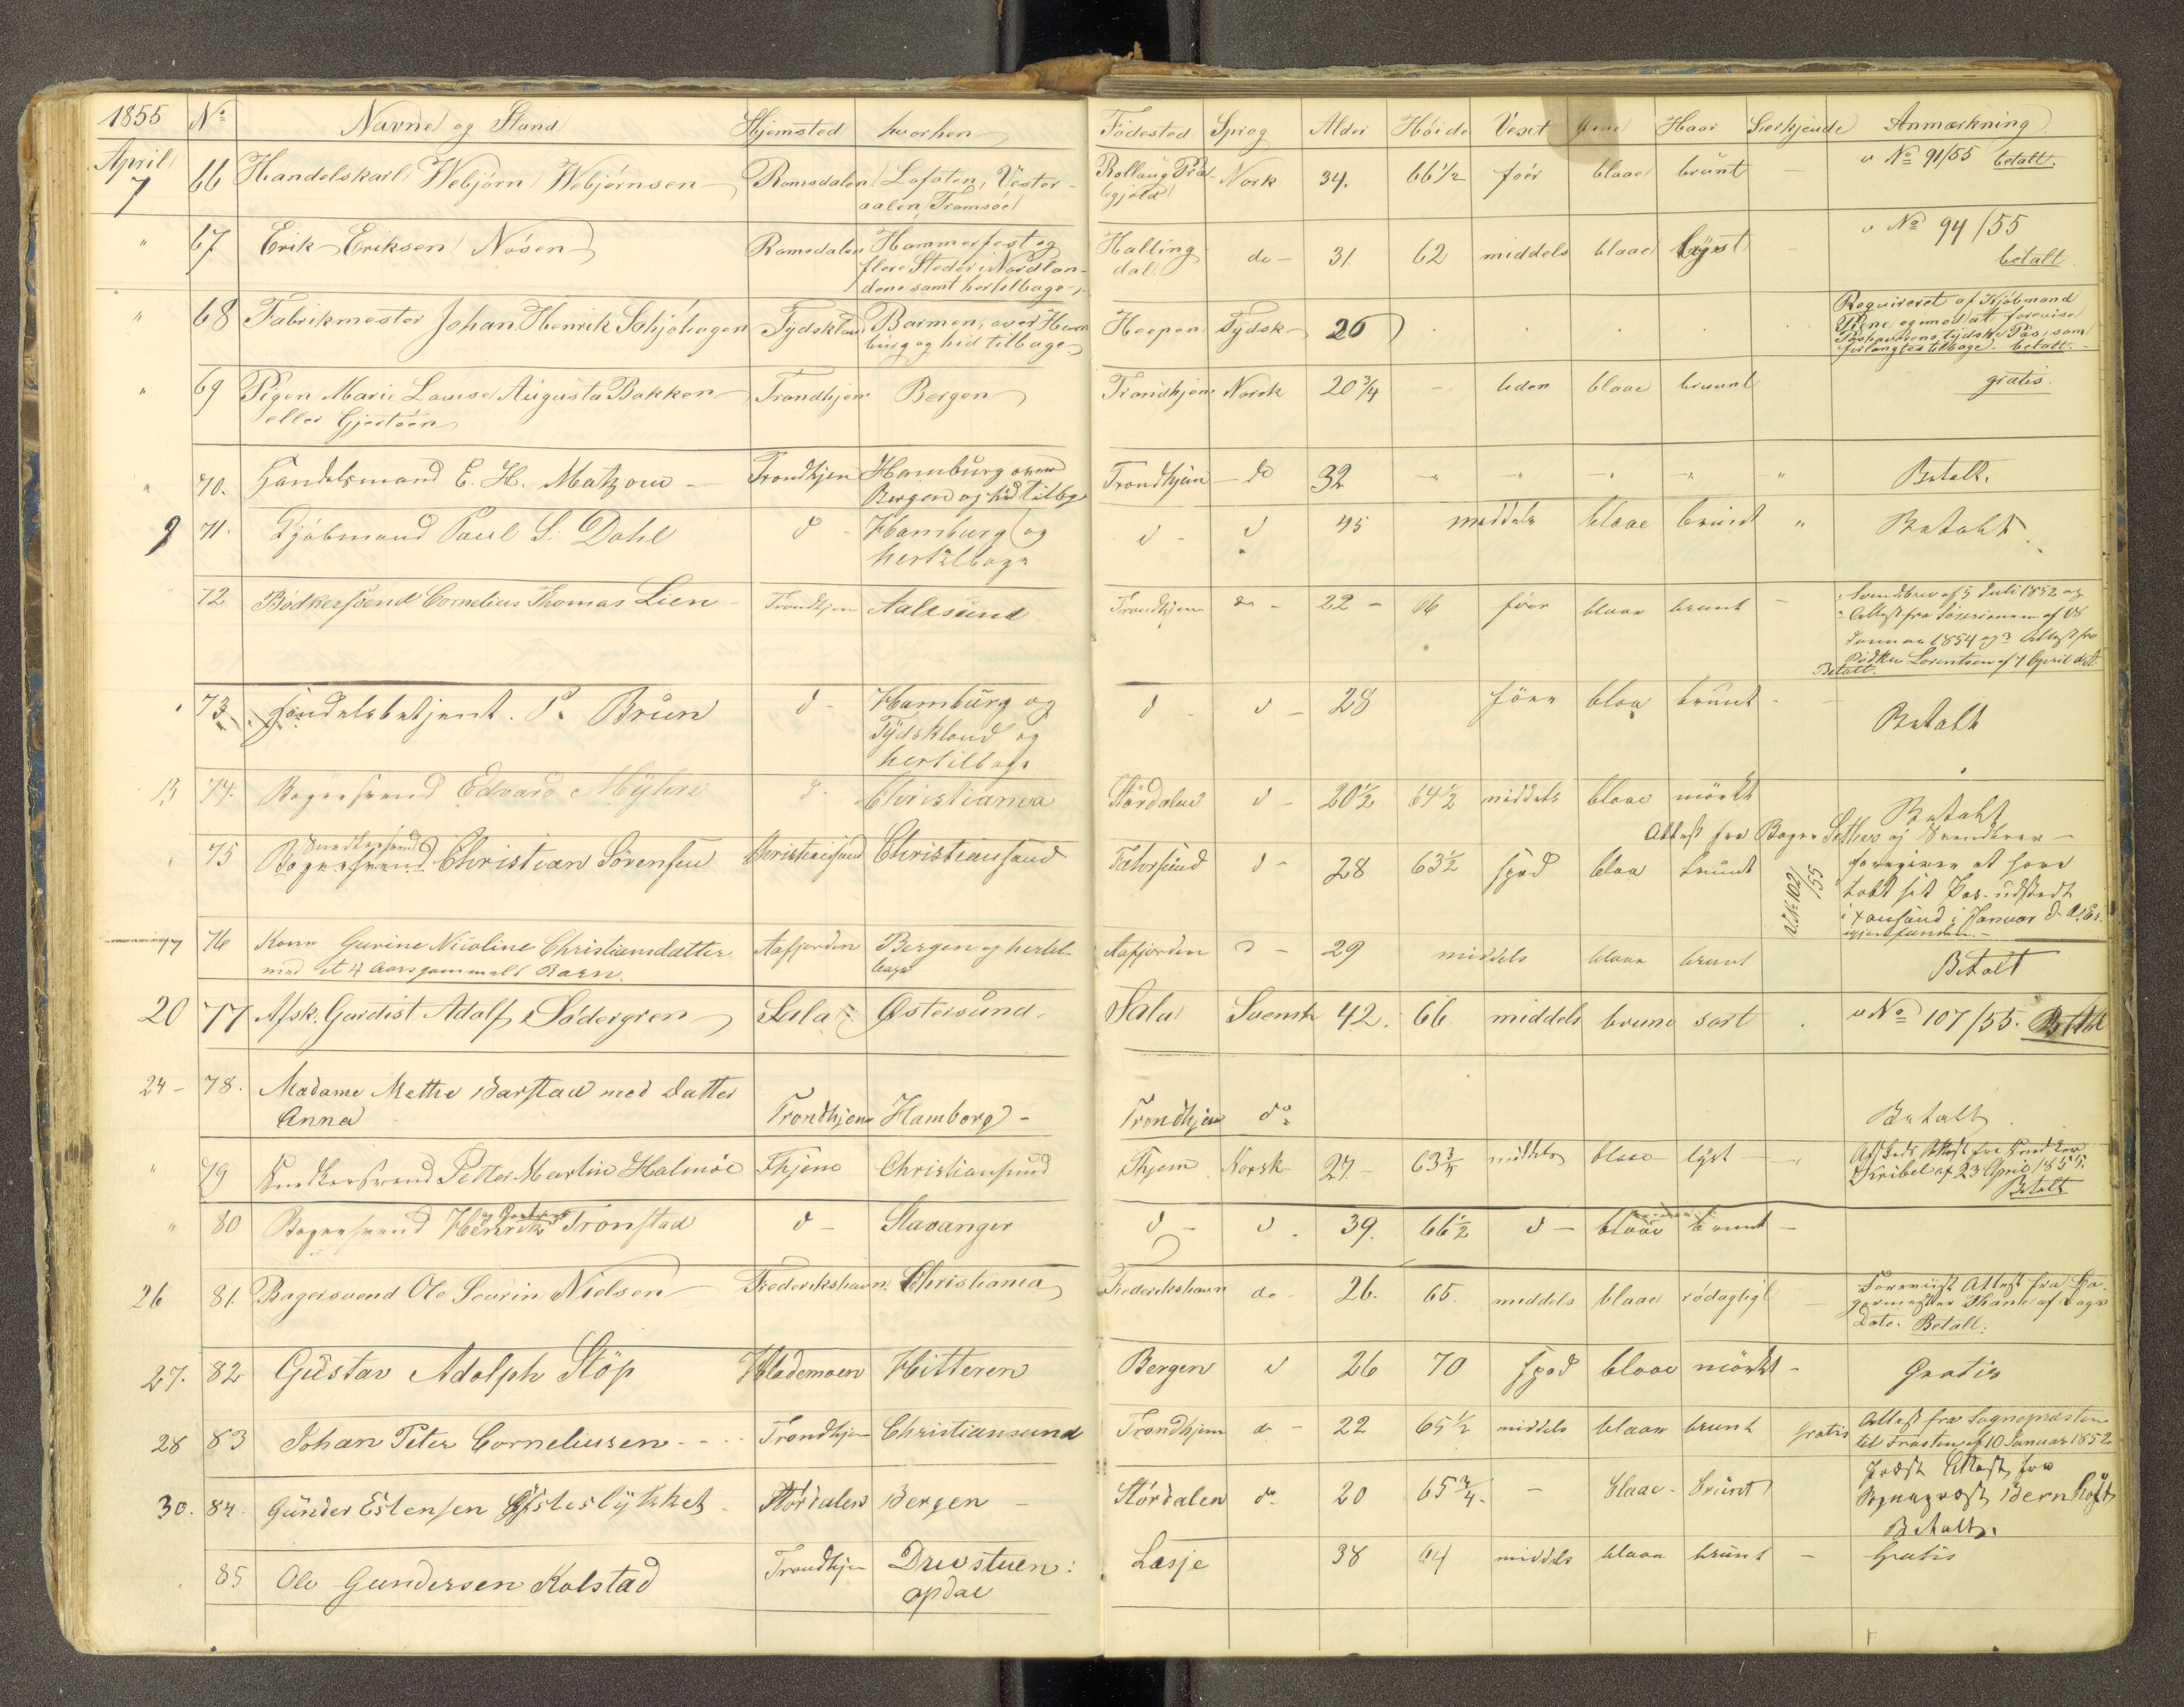 1855 No Navne og Stand Hjemsted hvorhen Födested Sprog Alder Höide Vext Öine Haar Særkjende Anmærkning
April 7 66 Handelskarl Webjörn Webjörnsen Romsdalen Lofoten, Vester- Rollaug Præ- Norsk 34. 66 1/2 för blaae brunt - v No 91/55 betalt.
aalen, Tromsöe stegjeld
" 67 Erik Eriksen Nösen Romsdalen Hammerfest og Halling- do - 31 62 middels blaae lyst - v No 94/55
flere Steder i Nordlan- dal betalt
dene samt hertilbage
" 68 Fabrikmester Johan Henrik Tydskland Barmen, over Ham- Heepen Tydsk 26 Requireret af Kjöbmand
burg og hid tilbage imod at forevise
tydske Pas, som
forlangtes tilbage - betalt.
" 69 Pigen Marie Louise Augusta Bakken Trondhjem Bergen Trondhjem Norsk 20 3/4 - liden blaae bruunt gratis.
eller Gjertsen
" 70. Handelsmand E. H. Matzow - Trondhjem Hamburg over Trondhjem - do 32 " " " " " Betalt.
Bergen og hid tilbage
9 71. Kjöbmand Paul S. Dahl d - Hamburg og d - d 45 middels blaae brunt " Betalt.
hertilbage
72 Bödkersvend Cornelius Thomas Lien - Trondhjem Aalesund Trondhjem do - 22 - 66 före blaae brunt - Svendebrev af 5 Juli 1852 og
Attest fra af 18
Januar 1854 og Attest fra
Bödker Lorentsen af 7 April d.A.
Betalt.
73 Handelsbetjent. P. Brun d - Hamburg og d - d - 28 före blaa brunt - Betalt
Tydskland og
hertilbage
13 74. Bagersvend Edvard Myhre d - Christiania Stördalen d - 20 1/2 64 1/2 middels blaae mörkt Betalt
Attest fra Bager og Svendebrev -
Snedkersvend
75 Bagersvend Christian Sörensen Christiansund Christiansand d - 28 63 1/2 spæd blaa brunt v. No 102/55 foregiver at have
tabt sit Pas udstedt
i Xansund i Januar d. A. Er
igjenfunden. -
17 76 Kone Gurine Nicoline Christiansdatter Aafjorden Bergen og hertil- Aafjorden d - 29 middels blaae brunt Betalt
med et 4 Aars gammelt Barn. bage
20 77 Afsk. Gardist Adolf Södergren Sala Östersund. Sala Svensk 42. 66 middels brune sort . v No 107/55. Betalt
24 - 78. Madame Mette Barstad med Datter
Anna Trondhjem Hamborg - Trondhjem do Betalt
" 79 Snedkersvend Petter Martin Halmöe Thjem Christiansund Thjem Norsk 27. - 63 3/4 middels blaae - lyst - Attest fra Snedker
af 23 April 1855.
Betalt
" 80 Bagersvend Henrik Tronstad d - Stavanger d - d . 39. 66 1/2 d - blaae brunt -
26 81. Bagersvend Ole Severin Nielsen Frederikshavn. Christiania Frederikshavn do - 26. 65. middels blaae rödagtigt - Foreviist Attest fra Ba-
germester Thane af Dags
Dato. Betalt.
27. 82 Gustav Adolph Stöp Hlademoen Hitteren Bergen d 26 70 spæd blaae mörkt - Gratis
28 83 Johan Peter Corneliusen - - - Trondhjem Christiansund Trondhjem do - 22 65 1/2 middels blaae brunt gratis Attest fra Sognepræsten
til Frosten af 10 Januar 1852
30. 84. Gunder Estensen Stördalen Bergen - Stördalen do 20 65 3/4. - blaae - brunt Forev. Attest fra
Sognepræst Bernhoft
Betalt.
85 Ole Gundersen Kolstad Trondhjem Drivstuen: Lesje 38 64 middels blaae brunt - Gratis
opdal